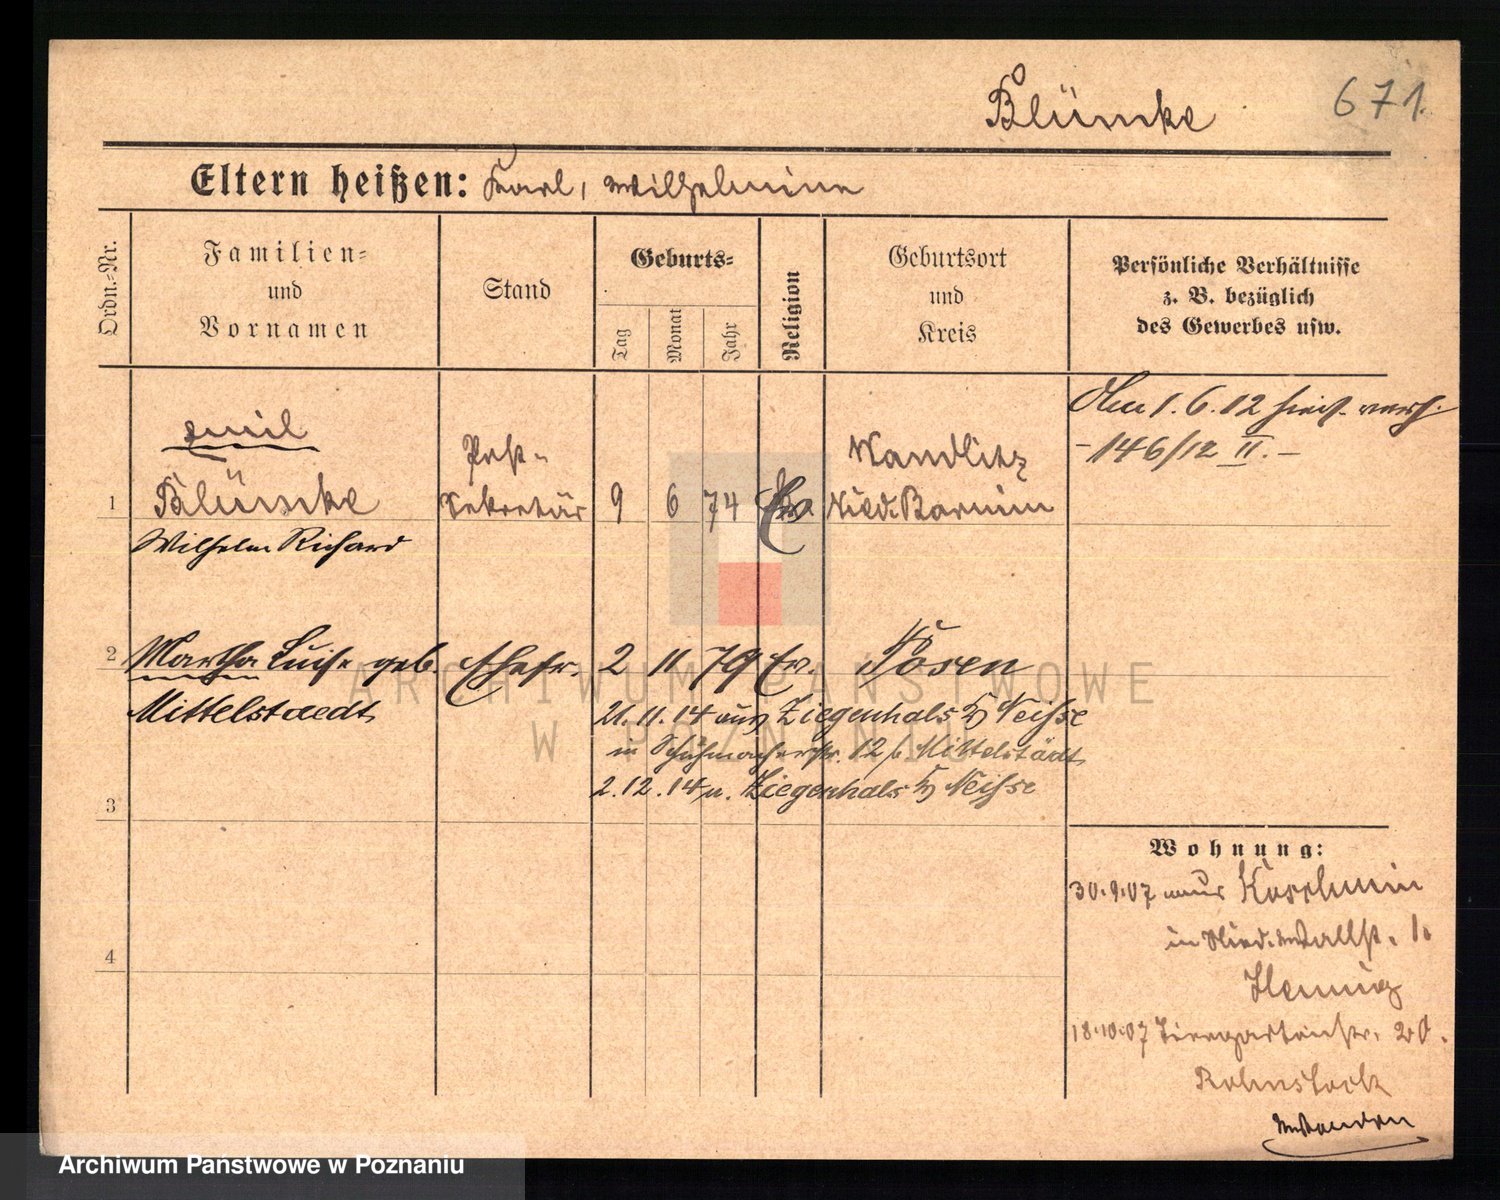 Blümke 671.
Eltern heißen: Karl, Wilhelmine
Ordn.-Nr.
Familien-
und
Vornamen
Stand
Geburts-
Tag
Monat
Jahr
Religion
Geburtsort
und
Kreis
Persönliche Verhältnisse
z. B. bezüglich
des Gewerbes usw.
1
Emil
Blümke
Wilhelm Richard
Post-
Sekretär
9 6 74 Ev.
Wandlitz
Nied. Barnim
Am 1. 6. 12 hier
- 146/12 II. -
2
Martha Luise geb.
Mittelstaedt
Ehefr. 2 11 79 Ev. Posen
21. 11. 14 aus Ziegenhals Neisse
in Schuhmacherstr. 12 b. Mittelstädt
2. 12. 14 n. Ziegenhals Neisse
3
4
Wohnung:
30.9.07 aus Koschmin
in Nied. Wallst. 1.
Hennig
18.10.07 Tiergartenstr. 20.
Rohnstock
ARCHIWUM PAŃSTWOWE
W POZNANIU
Archiwum Państwowe w Poznaniu